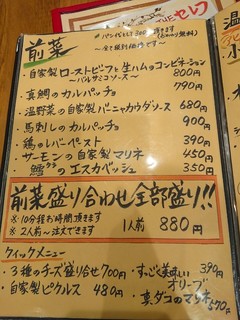 前菜
※バゲットは300円で頂きます
(おかわり無料)
〜全て税別価格です〜
・自家製ローストビーフと生ハムのコンビネーション
〜バルサミコソース〜 800円
・真鯛のカルパッチョ 790円
・温野菜の自家製バーニャカウダソース 680円
・馬刺しのカルパッチョ 900円
・鶏のレバーペースト 390円
・サーモンの自家製マリネ 450円
・鱈のエスカベッシュ 350円
前菜盛り合わせ全部盛り!!
※10分程お時間頂きます
※2人前〜注文できます 1人前 880円
クイックメニュー
・3種のチーズ盛り合せ 700円
・すっごく美味しいオリーブ 390円
・自家製ピクルス 480円
・真ダコのマリネ 570円